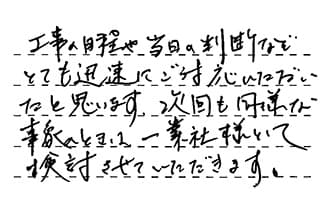 工事の日程や当日の判断など
とても迅速にご対応いただい
たと思います。次回も同様な
事象のときは一業社様として
検討させていただきます。